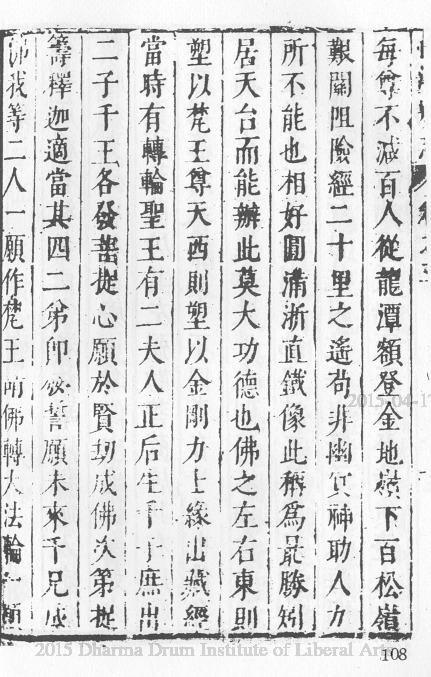 每尊不減百人從龍潭額登金地嶺下百松嶺
艱關阻險經二十里之遙茍非幽冥神助人力
所不能也相好圓滿浙直鐵像此稱為最勝矧
居天台而能辦此莫大功德也佛之左右東則
塑以梵王尊天西則塑以金剛力士緣出藏經
當時有轉輪聖王有二夫人正后生千子庶出
二子千王各發菩提心願於賢劫成佛次第捉
籌釋迦適當其四二弟即發誓願未來千兄成
佛我等二人一願作梵王請佛轉大法輪一願
108
2015-04-17
2015 Dharma Drum Institute of Liberal Arts